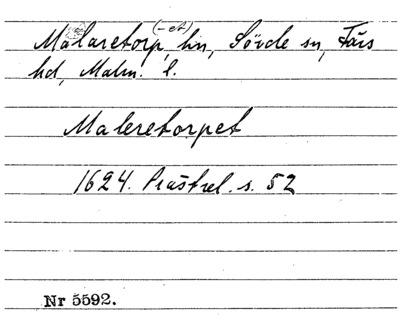 Målaretorp, (-et) hn, Sövde sn, Färs
hd, Malm. l.
Maleretorpet
1624. Prästrel. s. 52
Nr 5592.